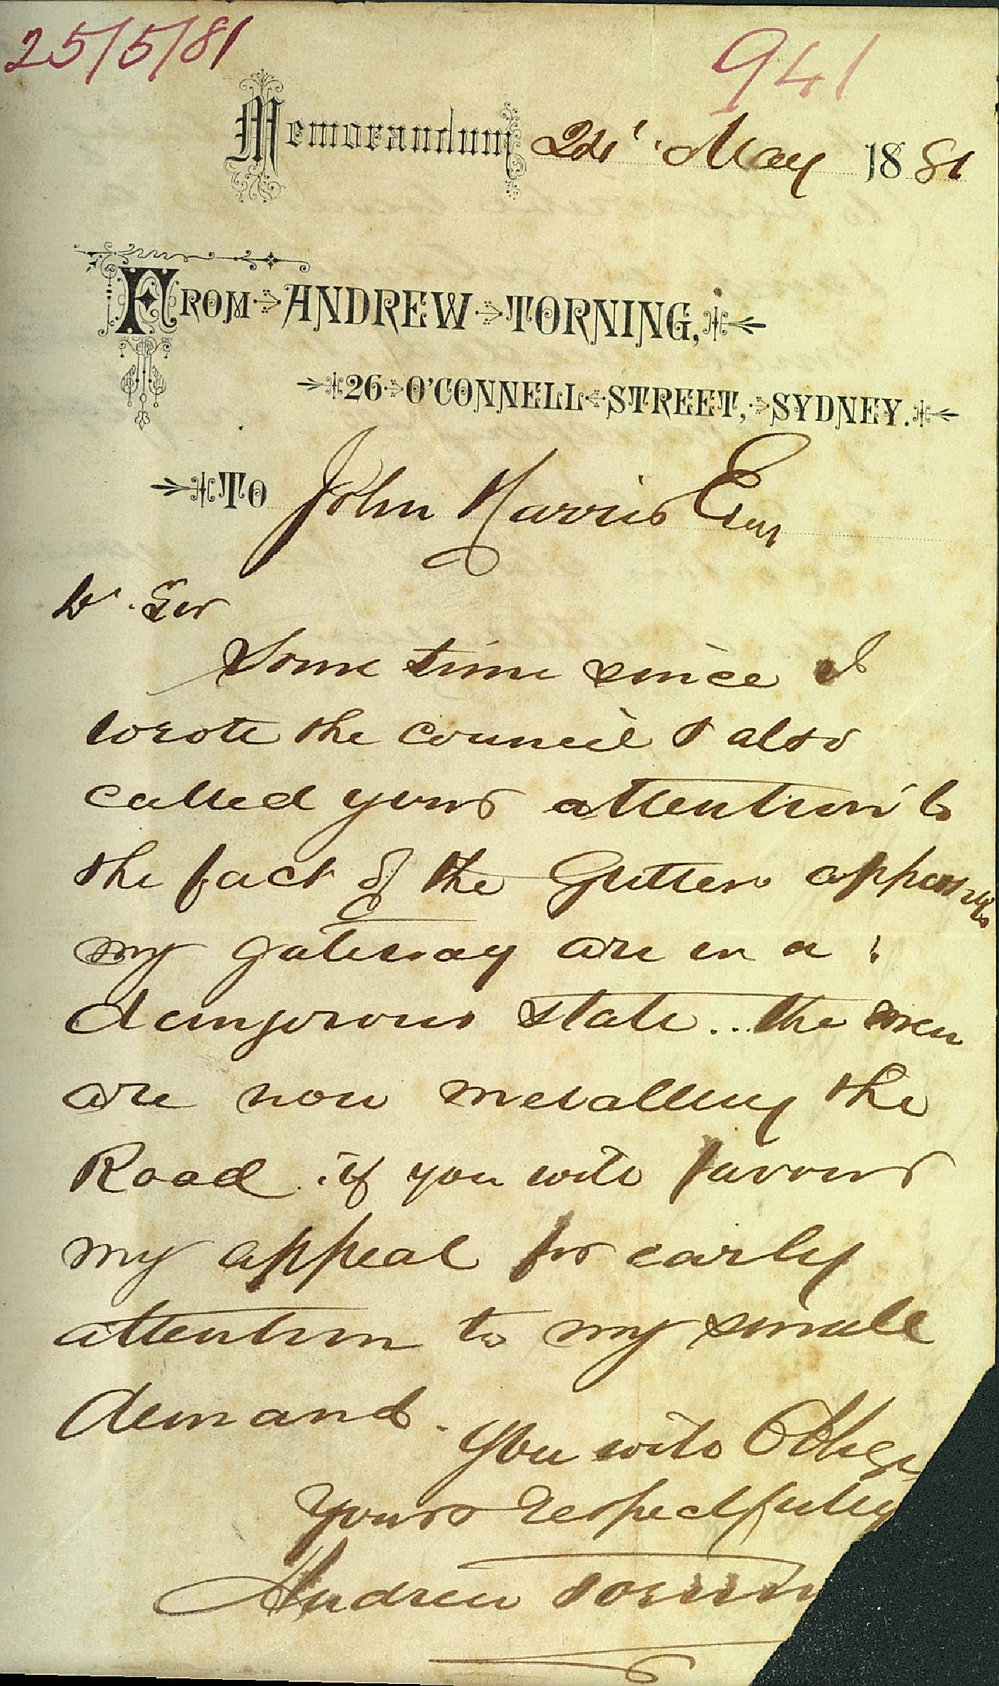 25/5/81
941
Memorandum 24' May 1881
FROM ANDREW TORNING,
26 O'CONNELL STREET, SYDNEY.
TO John Harris Esqr
Dr Sir
Some time since I
wrote the council & also
called yours attention to
the fact of the Gutters opposite
my gateway are in a
dangerous state.. the men
are now metalling the
Road. if you will favour
my appeal for early
attention to my small
demand. You will Oblige
Yours respectfully
Andrew Torning